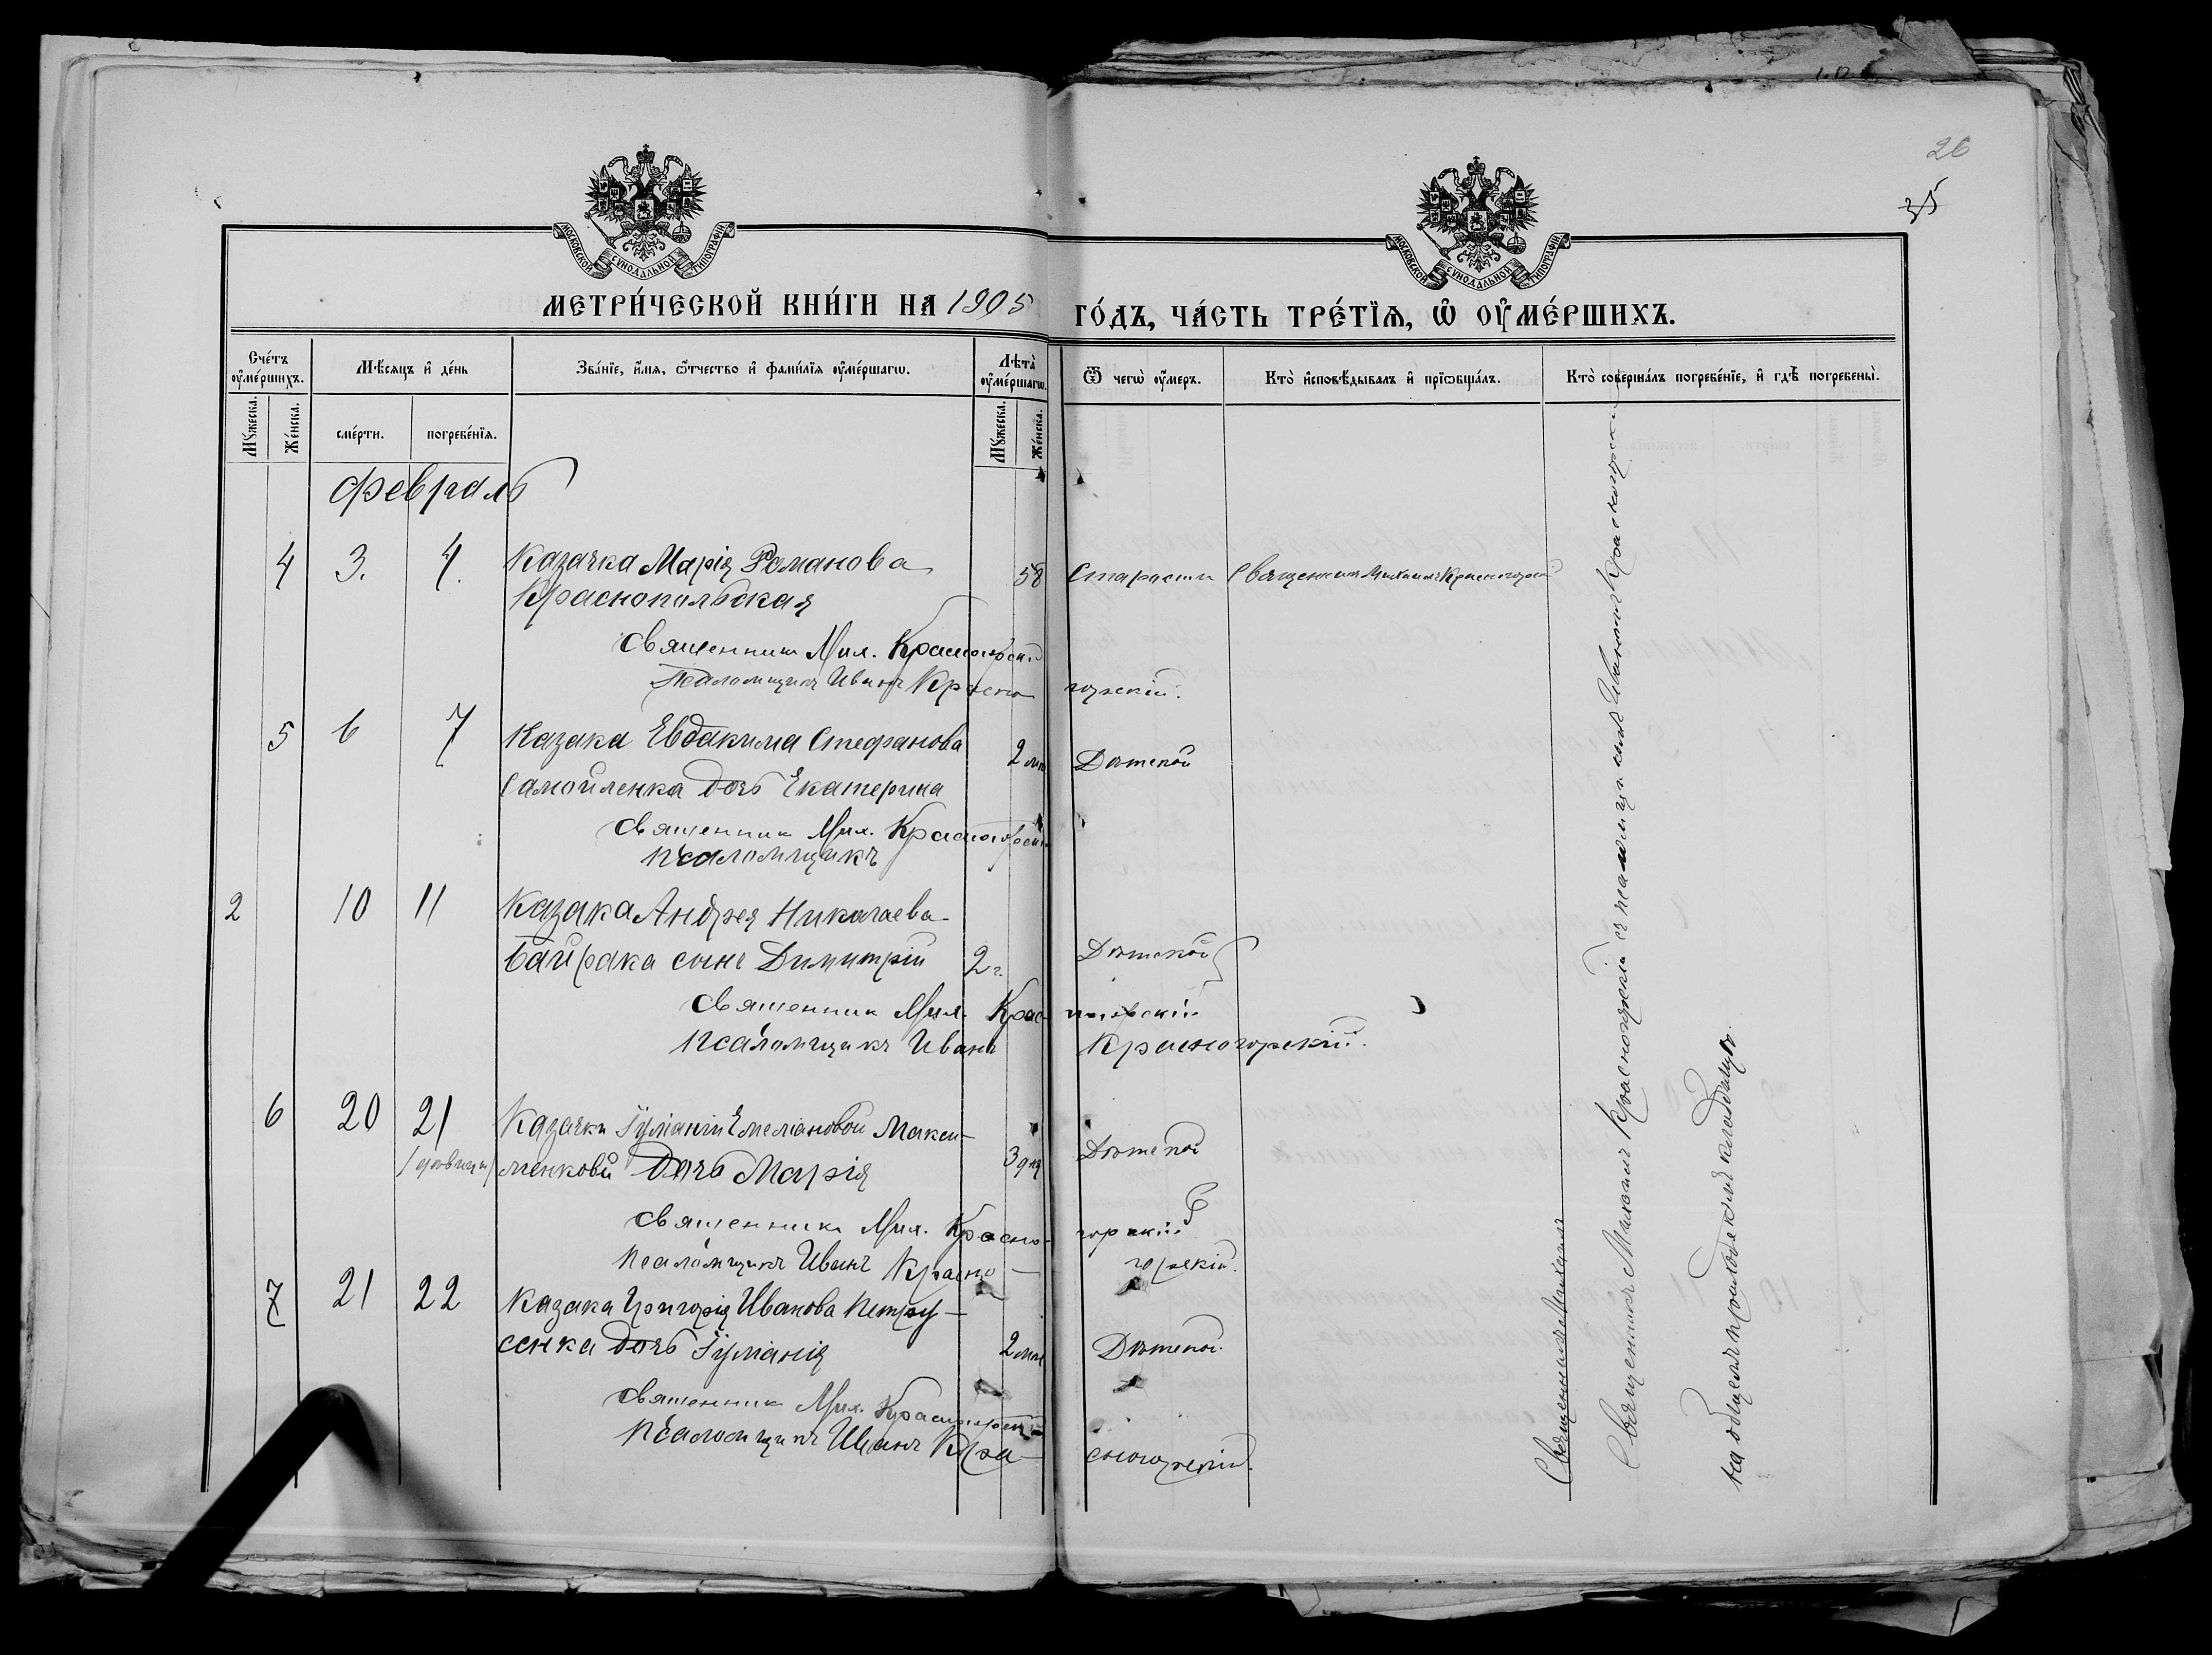 26
35
МОСКОВСКОЙ СѴНОДАЛЬНОЙ ТИПОГРАФІИ
МОСКОВСКОЙ СѴНОДАЛЬНОЙ ТИПОГРАФІИ
МЕТРИ́ЧЕСКОЙ КНИ́ГИ НА 1905 ГО́ДЪ, ЧА́СТЬ ТРЕ́ТЇѦ, Ѡ҆ ОУ҆МЕ́РШИХЪ.
Сче́тъ оу҆ме́ршихъ.
Мѣ́сяцъ и҆ де́нь
Зва́нїе, и҆́мя, ѻ҆́тчество и҆ фами́лїя оу҆ме́ршагѡ.
Лѣта̀ оу҆ме́ршагѡ.
Ѿ чегѡ̀ оу҆́меръ.
Кто̀ и҆сповѣ́дывалъ и҆ прїѡбща́лъ.
Кто̀ соверша́лъ погребе́нїе, и҆ гдѣ̀ погребены̀.
Мꙋ́жеска.
Же́нска.
сме́рти.
погребе́нїя.
Мꙋ́жеска.
Же́нска.
Февраль
4 3. 4. Казачка Марія Романова
Краснопольская 58 Старости Священникъ Михаилъ Красногорскій
Священникъ Мих. Красногорскій
Псаломщикъ Иванъ Красногорскій.
5 6 7 Казака Евдакима Стефанова
Самойленка дочь Екатерина 2 Дѣтской
Священникъ Мих. Красногорскій
Псаломщикъ
2 10 11 Казака Андрея Николаева
Байрака сынъ Димитрій 2 г. Дѣтской
Священникъ Мих. Красногорскій
Псаломщикъ Иванъ Красногорскій.
6 20 21 Казачки Іуліаніи Емеліановой Макси-
менковй дочь Марія 3 дня Дѣтской
Священникъ Мих. Красно-горскій
Псаломщикъ Иванъ Красно-горскій.
7 21 22 Казака Григорія Иванова Петру-
сенка дочь Іуліанія 2 Дѣтской.
Священникъ Мих. Красногорскій
Псаломщикъ Иванъ Кра-сногорскій.
Священникъ Михаилъ
Священникъ Михаилъ Красногорскій съ псаломщикомъ Иваномъ Красногорскимъ
на общемъ приходскомъ кладбищѣ.